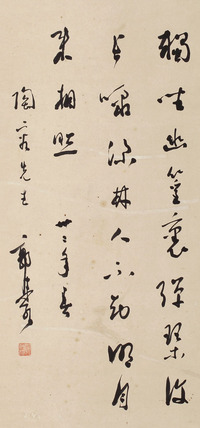 獨坐幽篁裏彈琴復
長嘯深林人不知明月
來相照 廿二年春
陶容先生